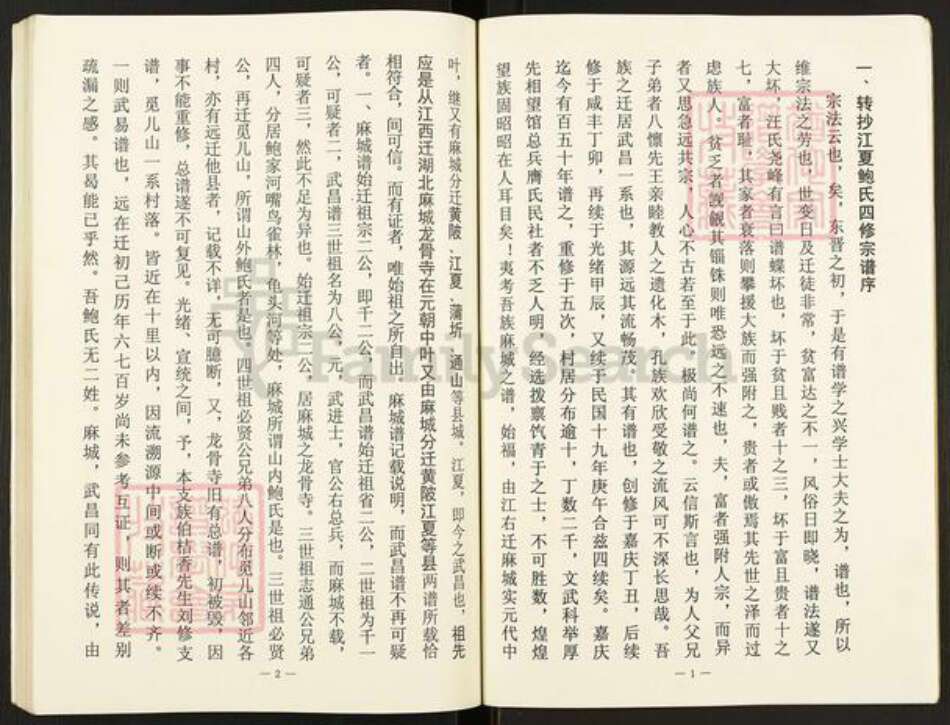 一、转抄江夏鲍氏四修宗谱序
宗法云也，矣，东晋之初，于是有谱学之兴学士大夫之为，谱也，所以
维宗法之劳也，世变日及迁徒非常，贫富达之不一，风俗日即晓，谱法遂又
大坏，汪氏尧峰有言曰谱蝶坏也，坏于贫且贱者十之三，坏于富且贵者十之
七，富者耻，其家者衰落则攀援大族而强附之，贵者或傲焉其先世之泽而过
虑族人。贫乏者觊觎其锱铢则唯恐远之不速也，夫，富者强附人宗，而异
者又思急远共宗，人心不古若至于此，极尚何谱之。云信斯言也，为人父兄
子弟者八懔先王亲睦教人之遗化木，孔族欢欣受敬之流风可不深长思哉。吾
族之迁居武昌一系也，其源远其流畅茂，其有谱也，创修于嘉庆丁丑，后续
修于咸丰丁卯，再续于光绪甲辰，又续于民国十九年庚午合兹四续矣。嘉庆
迄今有百五十年谱之，重修于五次，村居分布逾十，丁数二千，文武科举厚
先相望馆总兵膺氏民社者不乏人明，经选拨禀饩青于之士，不可胜数，煌煌
望族固昭昭在人耳目矣！夷考吾族麻城之谱，始福，由江右迁麻城实元代中
—1—
叶，继又有麻城分迁黄陂、江夏、蒲圻、通山等县城。江夏，即今之武昌也，祖先
应是从江西迁湖北麻城龙骨寺在元朝中叶又由麻城分迁黄陂江夏等县两谱所载恰
相符合，间可信。而有证者，唯始祖之所自出。麻城谱记载说明，而武昌谱不再可疑
者。一、麻城谱始迁祖宗二公，即千二公，而武昌谱始迁祖省二公，二世祖为千一
公，可疑者二，武昌谱三世祖名为八公，元，武进士，官公右总兵，而麻城不载，
可疑者三，然此不足为异也。始迁祖宗二公，居麻城之龙骨寺。三世祖志通公兄弟
四人，分居鲍家河嘴鸟雀林，龟头河等处，麻城所谓山内鲍氏是也。三世祖必贤
公，再迁觅儿山，所谓山外鲍氏者是也。四世祖必贤公兄弟八人分布觅儿山邻近各
村，亦有远迁他县者，记载不详，无可臆断，又，龙骨寺旧有总谱，初被毁，因
事不能重修，总谱遂不可复见。光绪、宣统之间，予，本支族伯桔香先生刘修支
谱，觅儿山一系村落。皆近在十里以内，因流溯源中间或断或续不齐。
一则武易谱也，远在迁初己历年六七百岁尚未参考互证，则其者差别
疏漏之感。其曷能已乎然。吾鲍氏无二姓。麻城，武昌同有此传说，由
—2—
FamilySearch